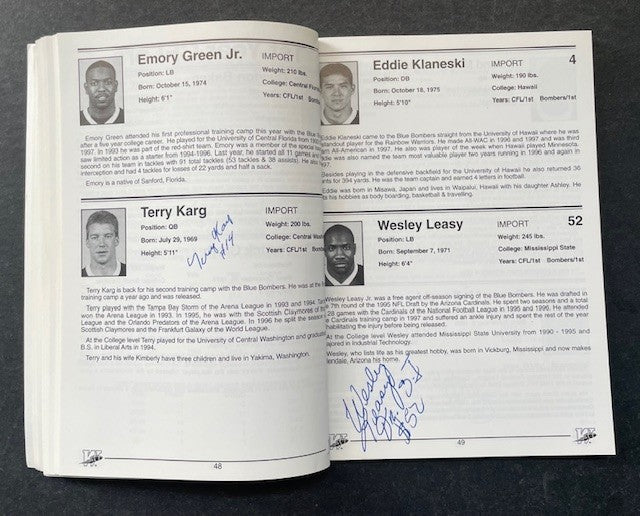 Emory Green Jr. IMPORT
Position: LB Weight: 210 lbs.
Born: October 15, 1974 College: Central Flor
Height: 6'1" Years: CFL/1st Bombers
Emory Green attended his first professional training camp this year with the Blue
after a five year college career. He played for the University of Central Florida from
1997. In 1993 he was part of the red-shirt team. Emory was a member of the special
saw limited action as a starter from 1994-1996. Last year, he started all 11 games and
second on his team in tackles with 91 total tackles (53 tackles & 38 assists). He also
interception and had 4 tackles for losses of 22 yards and half a sack.
Emory is a native of Sanford, Florida.
Terry Karg IMPORT
Position: QB Weight: 200 lbs.
Born: July 29, 1969 College: Central Washin
Height: 5'11" Years: CFL/1st Bombers
Terry Karg
#14
Terry Karg is back for his second training camp with the Blue Bombers. He was at the
training camp a year ago and was released.
Terry played with the Tampa Bay Storm of the Arena League in 1993 and 1994. Tampa
won the Arena League in 1993. In 1995, he was with the Scottish Claymores of the
League and the Orlando Predators of the Arena League. In 1996 he split the season
Scottish Claymores and the Frankfurt Galaxy of the World League.
At the College level Terry played for the University of Central Washington and graduated
B.S. in Liberal Arts in 1994.
Terry and his wife Kimberly have three children and live in Yakima, Washington.
48
Eddie Klaneski IMPORT 4
Position: DB Weight: 190 lbs.
Born: October 18, 1975 College: Hawaii
Height: 5'10" Years: CFL/1st Bombers/1st
Eddie Klaneski came to the Blue Bombers straight from the University of Hawaii where he was
standout player for the Rainbow Warriors. He made All-WAC in 1996 and 1997 and was third
am All-American in 1997. He also was player of the week when Hawaii played Minnesota.
ddie was also named the team most valuable player two years running in 1996 and again in
997.
Besides playing in the defensive backfield for the University of Hawaii he also returned 36
unts for 394 yards. He was the team captain and earned 4 letters in football.
Eddie was born in Misawa, Japan and lives in Waipalui, Hawaii with his daughter Ashley. He
ts his hobbies as body boarding, basketball & travelling.
Wesley Leasy IMPORT 52
Position: LB Weight: 245 lbs.
Born: September 7, 1971 College: Mississippi State
Height: 6'4" Years: CFL/1st Bombers/1st
Wesley Leasy Jr. was a free agent off-season signing of the Blue Bombers. He was drafted in
e 7th round of the 1995 NFL Draft by the Arizona Cardinals. He spent two seasons and a total
28 games with the Cardinals of the National Football League in 1995 and 1996. He attended
e Cardinals training camp in 1997 and suffered an ankle injury and spent the rest of the year
habilitating the injury before being released.
At the College level Wesley attended Mississippi State University from 1990 - 1995 and
ajored in Industrial Technology.
Wesley, who lists life as his greatest hobby, was born in Vickburg, Mississippi and now makes
lendale, Arizona his home.
Wesley
Leasy
#52
49